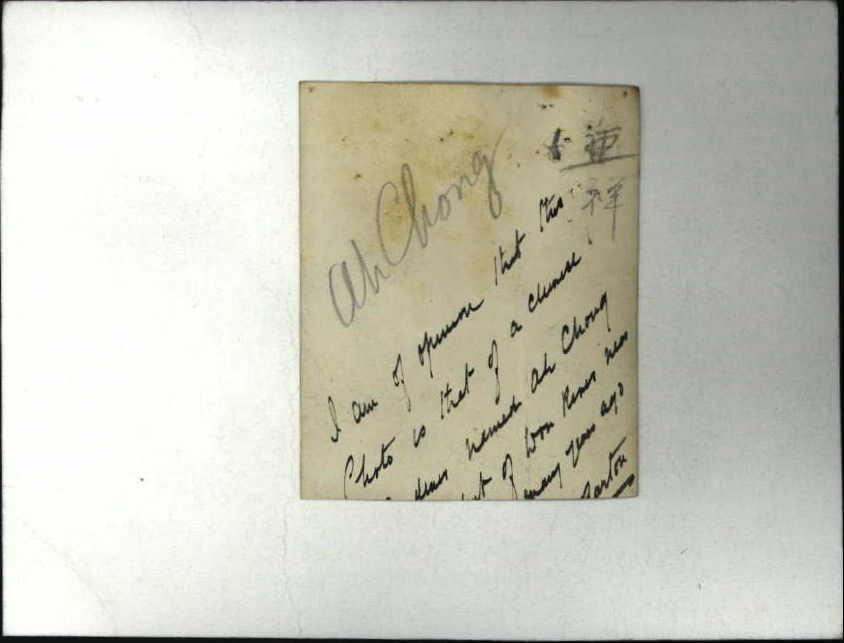 Ah Chong
祥
I am of opinion that this
Photo is that of a chinese
named Ah Chong
of
many years ago
Barton